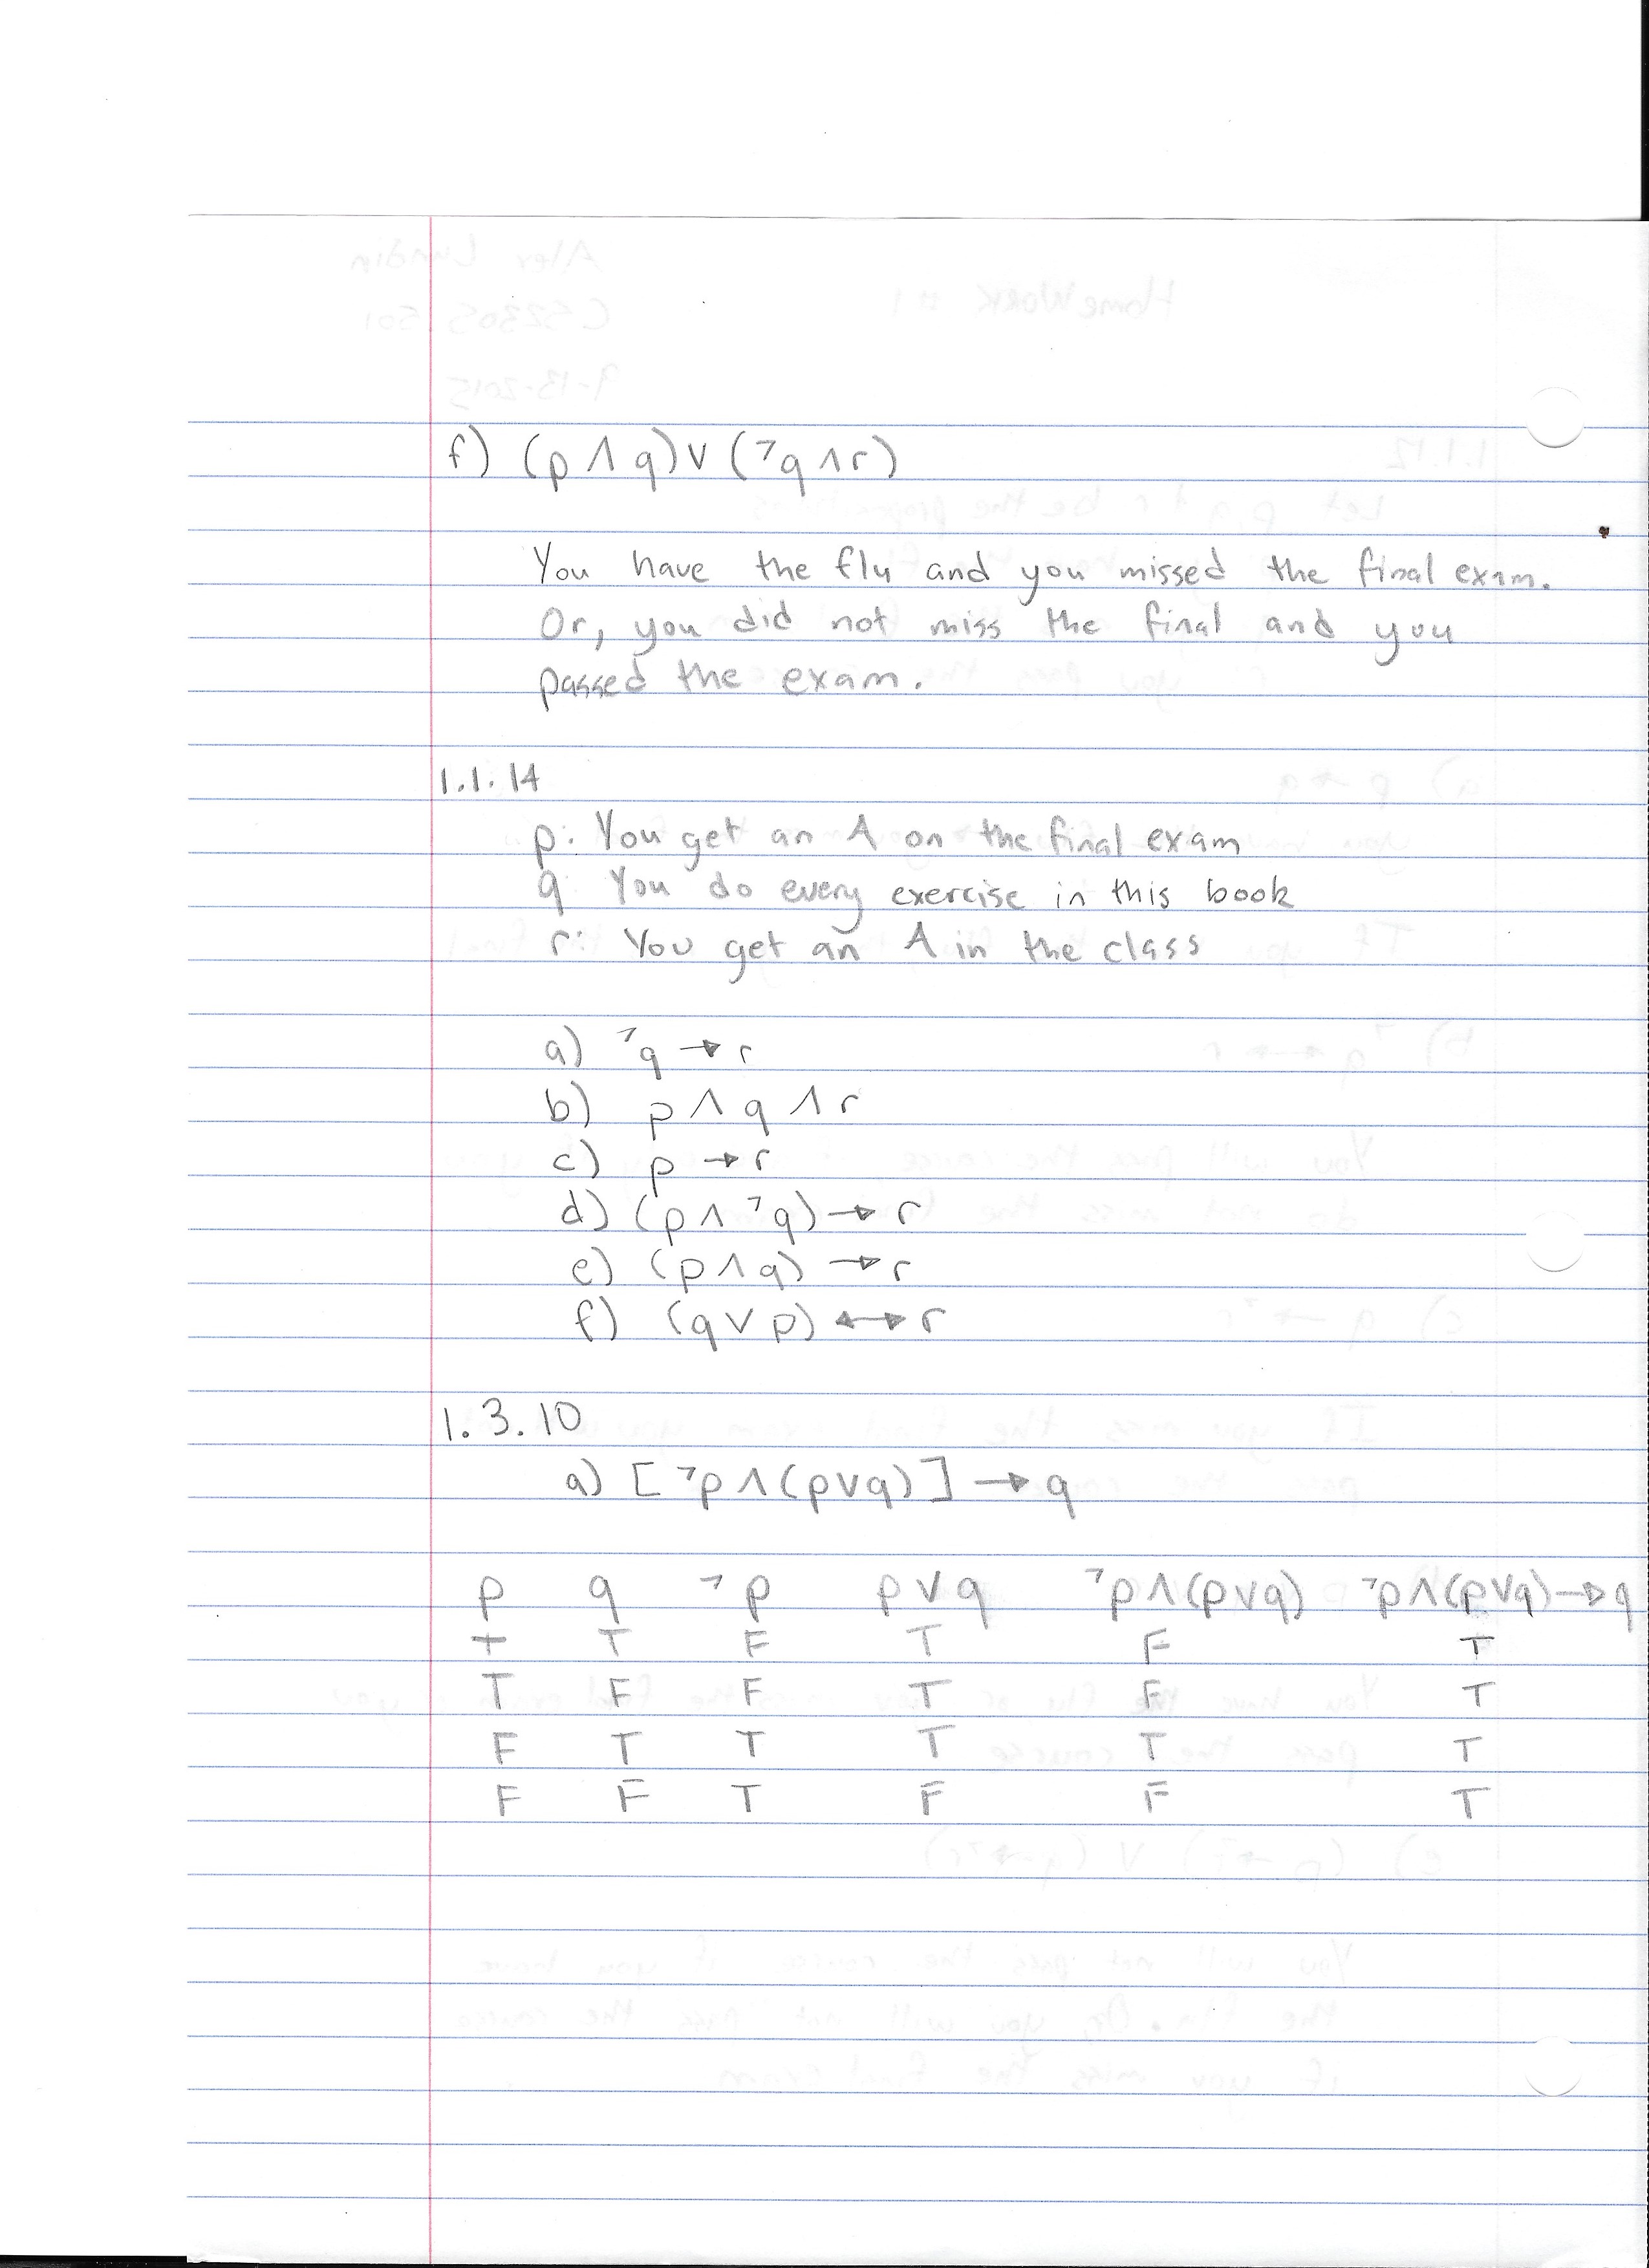 f) (p ∧ q) ∨ (¬q ∧ r)
You have the flu and you missed the final exam.
Or, you did not miss the final and you
passed the exam.
1.1.14
p: You get an A on the final exam
q: You do every exercise in this book
r: You get an A in the class
a) ¬q → r
b) p ∧ q ∧ r
c) p → r
d) (p ∧ ¬q) → r
e) (p ∧ q) → r
f) (q ∨ p) ↔ r
1.3.10
a) [¬p ∧ (p ∨ q)] → q
p q ¬p p ∨ q ¬p ∧ (p ∨ q) ¬p ∧ (p ∨ q) → q
T T F T F T
T F F T F T
F T T T T T
F F T F F T